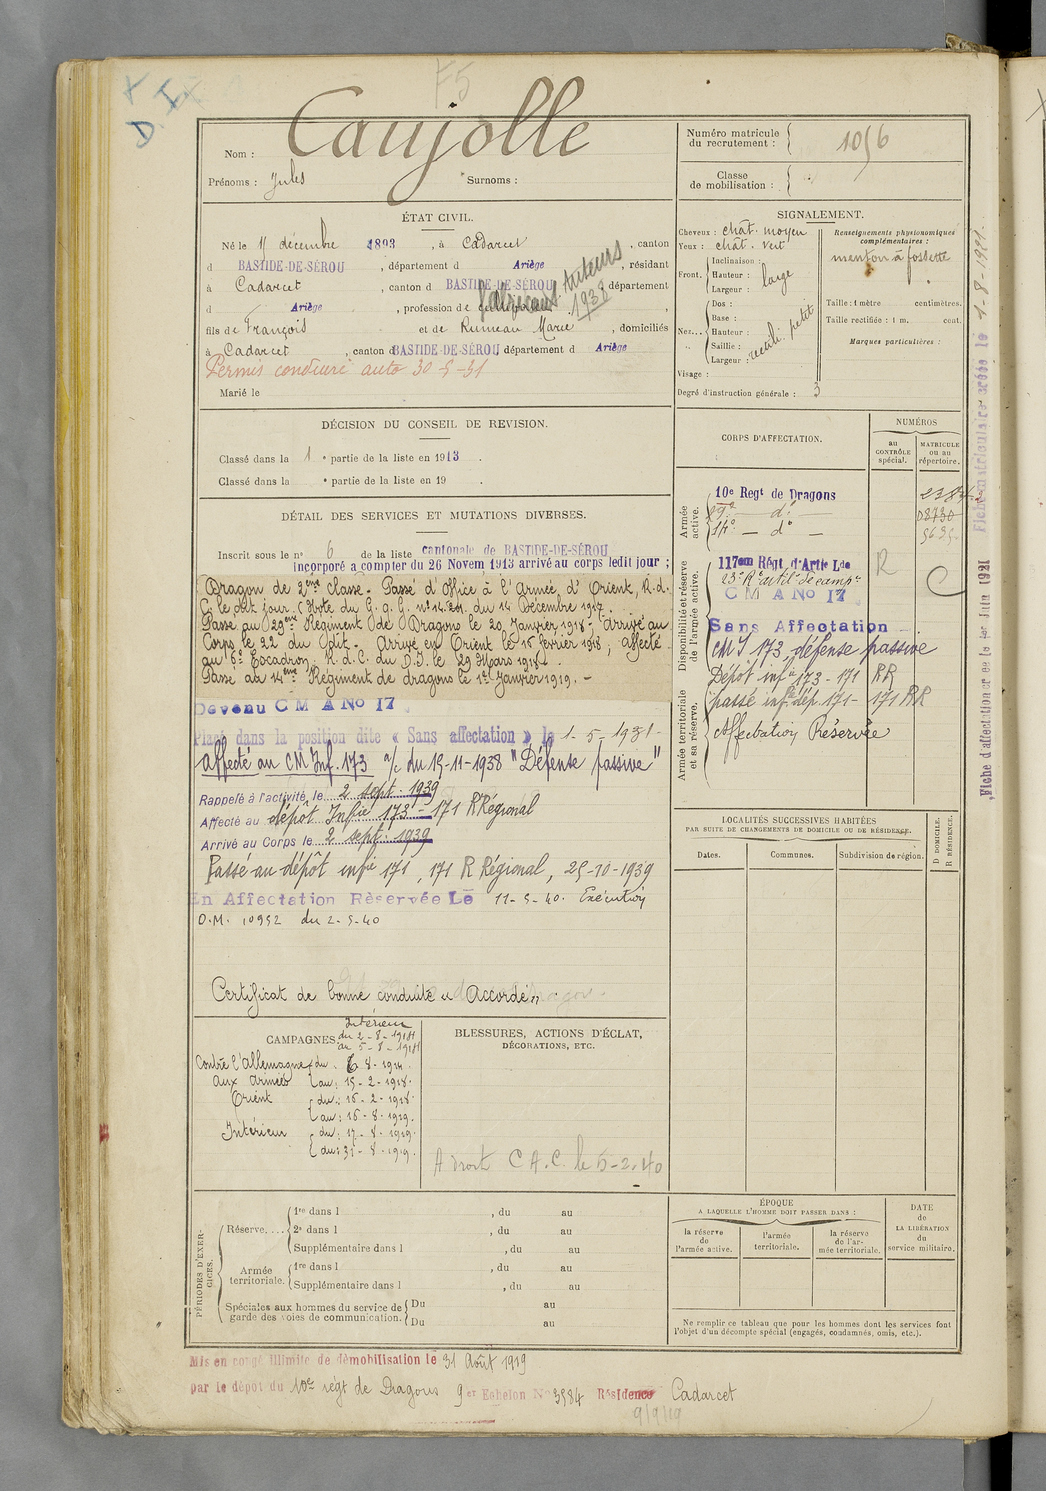 F5
Nom : Caujolle
Prénoms : Jules Surnoms :
Numéro matricule du recrutement : 1056
Classe de mobilisation :
ÉTAT CIVIL.
Né le 11 décembre 1893, à Cadarcet, canton
d BASTIDE-DE-SÉROU, département d Ariège, résidant
à Cadarcet, canton d BASTIDE-DE-SÉROU, département
d Ariège, profession de
1938
fils de François et de Rumeau Marie, domiciliés
à Cadarcet, canton d BASTIDE-DE-SÉROU, département d Ariège
Permis conduire auto 30-5-31
Marié le
SIGNALEMENT.
Cheveux : chât. moyen
Yeux : chât. vert
Front. Inclinaison :
Hauteur : large
Largeur :
Nez... Dos :
Base :
Hauteur : petit
Saillie :
Largeur :
Visage :
Degré d'instruction générale : 3
Renseignements physionomiques complémentaires :
menton à fossette
Taille : 1 mètre centimètres.
Taille rectifiée : 1 m. cent.
Marques particulières :
DÉCISION DU CONSEIL DE REVISION.
Classé dans la 1 e partie de la liste en 1913.
Classé dans la e partie de la liste en 19 .
DÉTAIL DES SERVICES ET MUTATIONS DIVERSES.
Inscrit sous le n° 6 de la liste cantonale de BASTIDE-DE-SÉROU
Incorporé a compter du 26 Novem 1913 arrivé au corps ledit jour ;
Dragon de 2ème classe. Passé d'Office à l'Armée, d'Orient, R.d.
C. le dit jour. (Note du G.Q.G. n° 14.201. du 14 Décembre 1917.
Passé au 29ème Régiment de Dragons le 20 Janvier 1918 - arrivé au
Corps le 22 du dit. Arrivé en Orient le 16 février 1918 ; affecté
au 6e Escadron. R.d.C. du D.I. le 29 Mars 1918.
Passé au 14ème Régiment de dragons le 1er Janvier 1919. -
Devenu C M A No 17
Placé dans la position dite « Sans affectation » le 1-5-1931-
Affecté au CM Inf. 173 a/c du 15-11-1938 "Défense passive"
Rappelé à l'activité le 2 sept. 1939
Affecté au dépôt Infie 173 - 171 R Régional
Arrivé au Corps le 2 sept. 1939
Passé au dépôt infie 171, 171 R Régional, 25-10-1939
En Affectation Rèservée Le 11-5-40. Exécution
D.M. 10952 du 2-5-40
Certificat de bonne conduite "Accordé"
CORPS D'AFFECTATION.
NUMÉROS
au CONTRÔLE spécial.
MATRICULE ou au répertoire.
Armée active.
10e Regt de Dragons
29e — d° —
14e — d° —
Disponibilité et réserve de l'armée active.
117em Régt d'Artie Lde R
23e R° artil de campe
C M A No 17
Sans Affectation
CM I 173 défense passive
Armée territoriale et sa réserve.
Dépôt infie 173 - 171 RR
passé infie dép. 171 - 171 RR
Affectation Réservée
Fiche matriculaire créée le 1-8-1921.
Fiche d'affectation créée le 1er Juin 1921
LOCALITÉS SUCCESSIVES HABITÉES
PAR SUITE DE CHANGEMENTS DE DOMICILE OU DE RÉSIDENCE.
Dates. Communes. Subdivision de région. D DOMICILE. R RÉSIDENCE.
CAMPAGNES
Intérieur
du 2-8-1914
au 5-8-1914
Contre l'Allemagne du : 6-8-1914.
aux armées au : 15-2-1918.
Orient du : 16-2-1918.
au : 16-8-1919.
Intérieur du : 17-8-1919.
du : 31-8-1919.
BLESSURES, ACTIONS D'ÉCLAT,
DÉCORATIONS, ETC.
A droit C.A.C. le 5-2-40
PÉRIODES D'EXERCICES.
Réserve.... 1re dans l , du au
2e dans l , du au
Supplémentaire dans l , du au
Armée territoriale. 1re dans l , du au
Supplémentaire dans l , du au
Spéciales aux hommes du service de garde des voies de communication. Du au
Du au
ÉPOQUE
A LAQUELLE L'HOMME DOIT PASSER DANS :
la réserve de l'armée active.
l'armée territoriale.
la réserve de l'armée territoriale.
DATE de LA LIBÉRATION du service militaire.
Ne remplir ce tableau que pour les hommes dont les services font
l'objet d'un décompte spécial (engagés, condamnés, omis, etc.).
Mis en congé illimité de démobilisation le 31 Août 1919
par le dépôt du 10e régt de Dragons 9er Echelon No 3584 Résidence Cadarcet
9/9/19